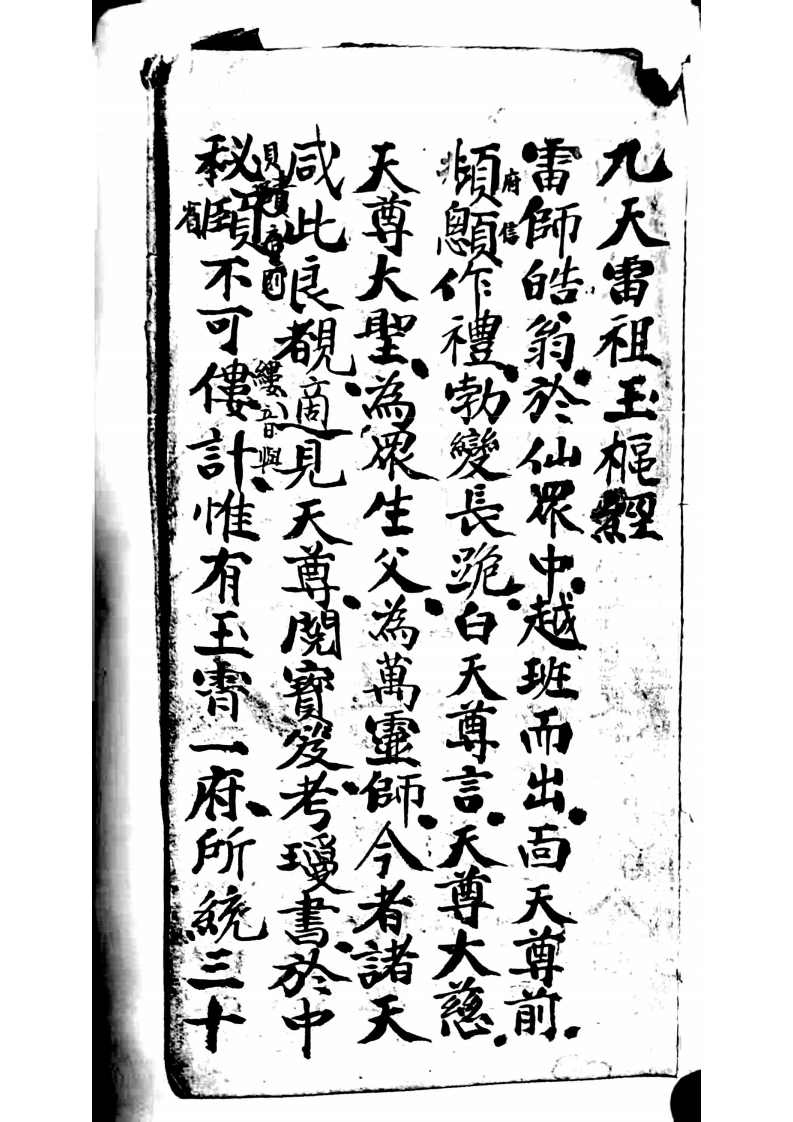 九天雷祖玉樞經
雷師皓翁於仙眾中越班而出面天尊前
頫顖作禮勃變長跪白天尊言天尊大慈
府信
天尊大聖為眾生父為萬靈師今者諸天
咸此良覩適見天尊閱寶笈考瓊書於中
秘賾不可僂計惟有玉霄一府所統三十
縷音與